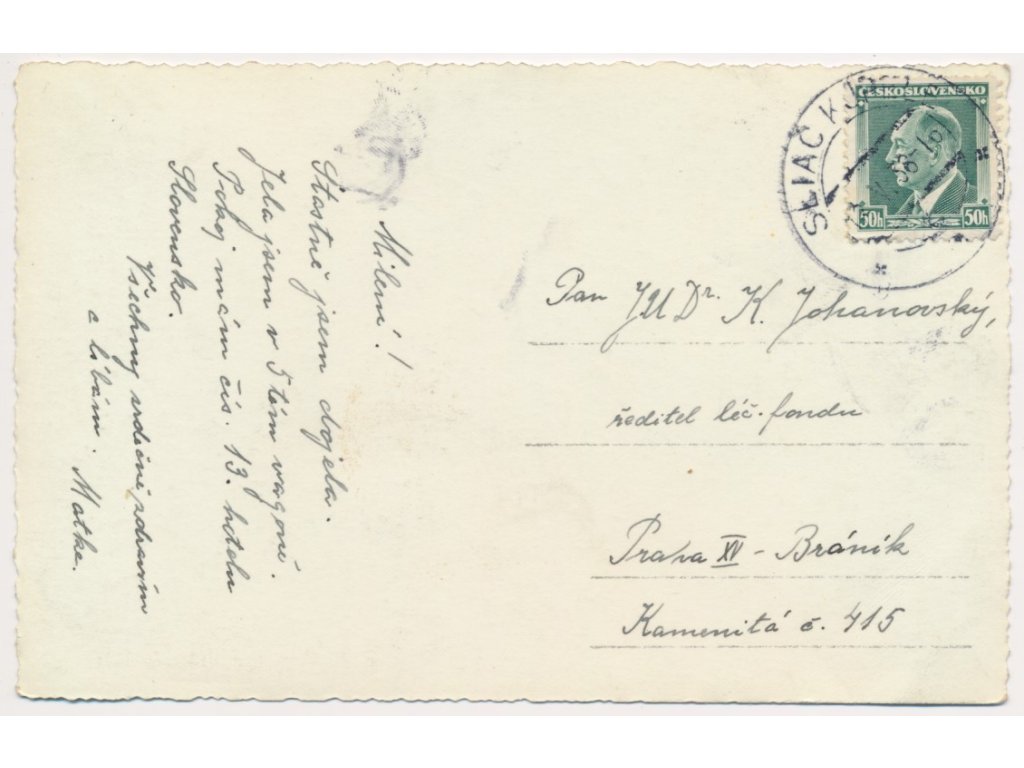 Milení!
Šťastně jsem dojela.
Jela jsem v 5tém vagoně.
Pokoj mám čís. 13. hotelu
Slovensko.
Všechny srdečně zdravím
a líbám. Matka.
ČESKOSLOVENSKO
50h 50h
SLIAČ KÚP
Pan JUDr. K. Johanovský,
ředitel léč. fondu
Praha XV - Bráník
Kamenitá č. 415